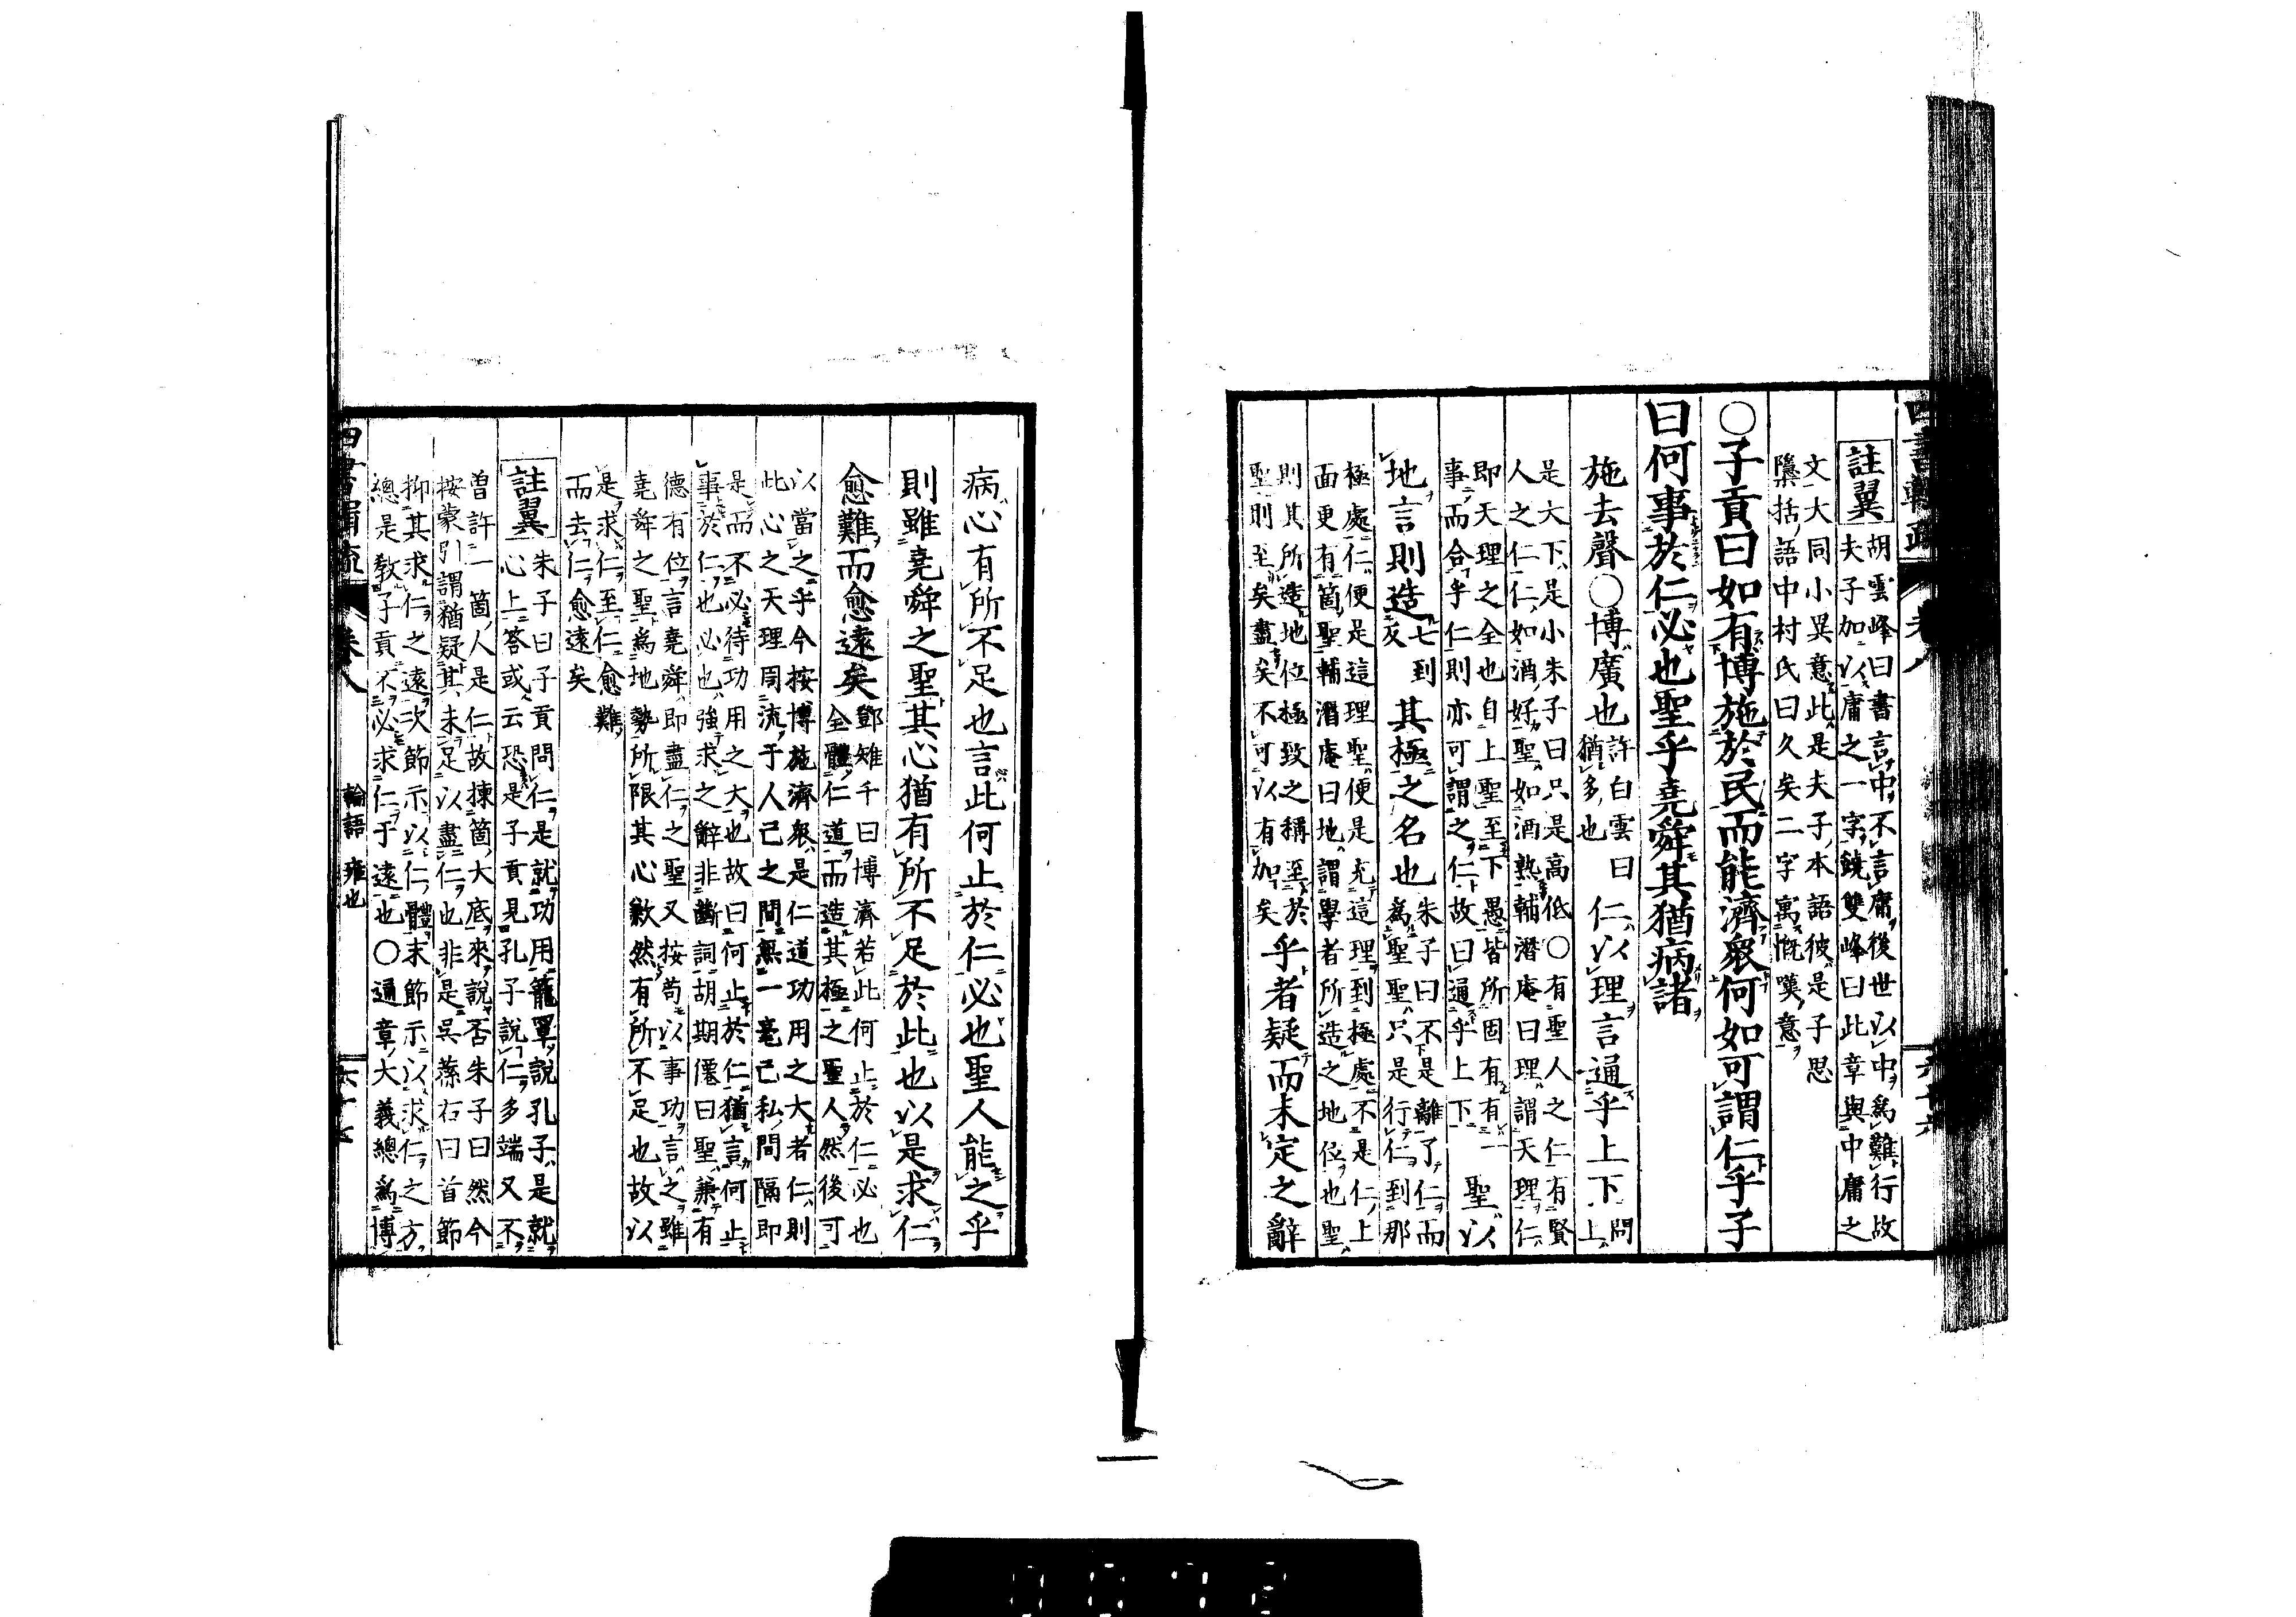 四書輯疏 卷八
註翼
胡雲峰曰書言中不言庸後世以中爲難行故
夫子加以庸之一字饒雙峰曰此章與中庸之
文大同小異意此是夫子本語彼是子思
檃括語中村氏曰久矣二字寓慨嘆意
○子貢曰如有博施於民而能濟衆何如可謂仁乎子
曰何事於仁必也聖乎堯舜其猶病諸
施去聲○博廣也
許白雲曰
猶多也
仁以理言通乎上下
問
上
是大下是小朱子曰只是高低○有聖人之仁有賢
人之仁仁如酒好聖如酒熟輔潛庵曰理謂天理仁
即天理之全也自上聖至下愚皆所固有有一
事而合乎仁則亦可謂之仁故曰通乎上下
聖以
地言則造
七到
反
其極之名也
朱子曰不是離了仁而
爲聖聖只是行仁到那
極處仁便是這理聖便是充這理到極處不是仁上
面更有箇聖輔潛庵曰地謂學者所造之地位也聖
則其所造地位極致之稱至於
聖則至矣盡矣不可以有加矣
乎者疑而未定之辭
病心有所不足也言此何止於仁必也聖人能之乎
則雖堯舜之聖其心猶有所不足於此也以是求仁
愈難而愈遠矣
鄧雉千曰博濟若此何止於仁必也
全體仁道而造其極之聖人然後可
以當之乎今按博施濟衆是仁道功用之大者仁則
此心之天理周流于人己之間無一毫己私間隔即
是而不必待功用之大也故曰何止於仁猶言何止
事於仁也必也強求之辭非斷詞胡期僊曰聖兼有
德有位言堯舜即盡仁之聖又按苟以事功言之雖
堯舜之聖爲地勢所限其心歉然有所不足也故以
是求仁至仁愈難
而去仁愈遠矣
註翼
朱子曰子貢問仁是就功用籠罩說孔子是就
心上答或云恐是子貢見孔子說仁多端又不
曾許一箇人是仁故揀箇大底來說否朱子曰然今
按蒙引謂猶疑其未足以盡仁也非是吳蓀右曰首節
抑其求仁之遠次節示以仁體末節示以求仁之方
總是教子貢不必求仁于遠也○通章大義總爲博
四書輯疏 卷八 論語 雍也 六十七